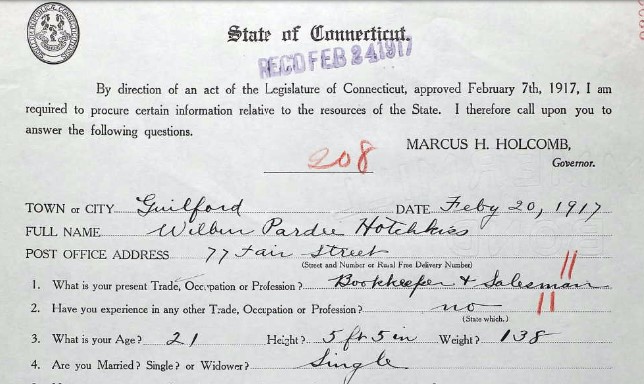 State of Connecticut.
REC'D FEB 24 1917
By direction of an act of the Legislature of Connecticut, approved February 7th, 1917, I am
required to procure certain information relative to the resources of the State. I therefore call upon you to
answer the following questions.
MARCUS H. HOLCOMB,
Governor.
208
TOWN or CITY Guilford DATE Feby 20, 1917
FULL NAME Wilbur Pardee Hotchkiss
POST OFFICE ADDRESS 77 Fair Street
(Street and Number or Rural Free Delivery Number)
1. What is your present Trade, Occupation or Profession? Bookkeeper & Salesman 11
2. Have you experience in any other Trade, Occupation or Profession? no 11
(State which.)
3. What is your Age? 21 Height? 5 ft 5 in Weight? 138
4. Are you Married? Single? or Widower? Single